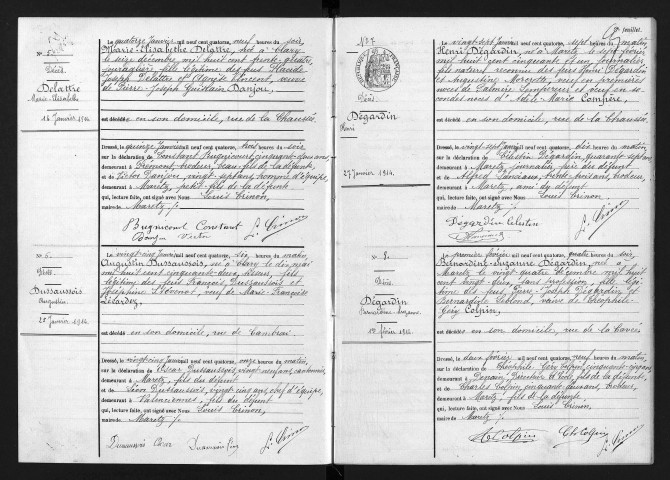 N° 5.
Décès
Delattre
Marie-Elisabethe
14 Janvier 1914
Le quatorze Janvier mil neuf cent quatorze, neuf heures du soir,
Marie-Elisabethe Delattre, né à Clary
le seize décembre mil huit cent trente-quatre,
fille légitime des feus Claude
Joseph Delattre et Vincent, veuve
de Pierre-Joseph Danjou,
est décédé en son domicile, rue de la Chaussée
Dressé, le quinze Janvier mil neuf cent quatorze, trois heures du soir
sur la déclaration de Constant Bugnicourt, cinquante-deux ans,
demeurant à Prémont, brodeur, beau-fils de la défunte,
et Victor Danjou, vingt-sept ans, homme d'équipe,
demeurant à Maretz, petit-fils de la défunte
qui, lecture faite, ont signé avec Nous Louis Crinon,
maire de Maretz
Bugnicourt Constant
Danjou Victor
L. Crinon
N° 6.
Décès
Dussaussois
Augustin
25 Janvier 1914
Le vingt cinq Janvier mil neuf cent quatorze, dix heures du matin,
Augustin Dussaussois, né à
mil huit cent cinquante-deux, fils
légitime des feus François Dussaussois et
Joséphine veuf de Marie-Françoise
Lézardez
est décédé en son domicile, rue de Cambrai
Dressé, le vingt-cinq Janvier mil neuf cent quatorze, onze heures du matin,
sur la déclaration de Oscar Dussaussois, vingt-neuf ans,
demeurant à Maretz, fils du défunt
et Léon Dussaussois, vingt-cinq ans, chef d'équipe,
demeurant à Valenciennes, fils du défunt
qui, lecture faite, ont signé avec Nous Louis Crinon,
maire de Maretz
L. Crinon
feuillet.
N° 7
Décès.
Dégardin
Henri
27 Janvier 1914.
Le vingt-sept Janvier mil neuf cent quatorze, sept heures du matin,
Henri Dégardin, né à Maretz le sept février
mil huit cent cinquante et un, journalier
fils naturel reconnu des feus Dégardin
et Augustine Mercette, veuf en premières
noces de Palmire et veuf en se-
condes noces d'Adèle-Marie Compère,
est décédé en son domicile, rue de la Chaussée
Dressé, le vingt-sept Janvier mil neuf cent quatorze, dix heures du matin,
sur la déclaration de Célestin Dégardin, quarante-sept ans,
demeurant à Maretz, fils du défunt
et Alfred trente-trois ans, brodeur,
demeurant à Maretz, ami du défunt
qui, lecture faite, ont signé avec Nous Louis Crinon,
maire de Maretz
Dégardin Célestin
L. Crinon
N° 8.
Décès.
Dégardin
Bernardine-Suzanne
1er février 1914.
Le premier février mil neuf cent quatorze, quatre heures du soir
Bernardine-Suzanne Dégardin, né à
Maretz le vingt-quatre décembre mil huit
cent vingt-six, sans profession, fille légi-
time des feus Pierre-Joseph Dégardin et
Bernardine Leblond, veuve de Théophile-
Géry Colpin,
est décédé en son domicile, rue de la Cavée
Dressé, le deux février mil neuf cent quatorze, neuf heures du matin,
sur la déclaration de Théophile-Géry Colpin,
demeurant à Denain, fils de la défunte,
et Charles Colpin, brodeur,
demeurant à Maretz, fils de la défunte
qui, lecture faite, ont signé avec Nous Louis Crinon,
maire de Maretz
Colpin
Ch Colpin
L. Crinon